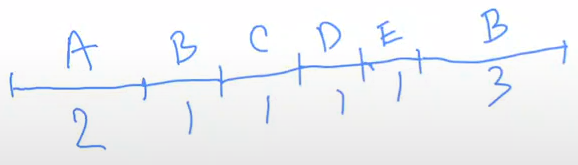 A B C D E B
2 1 1 1 1 3